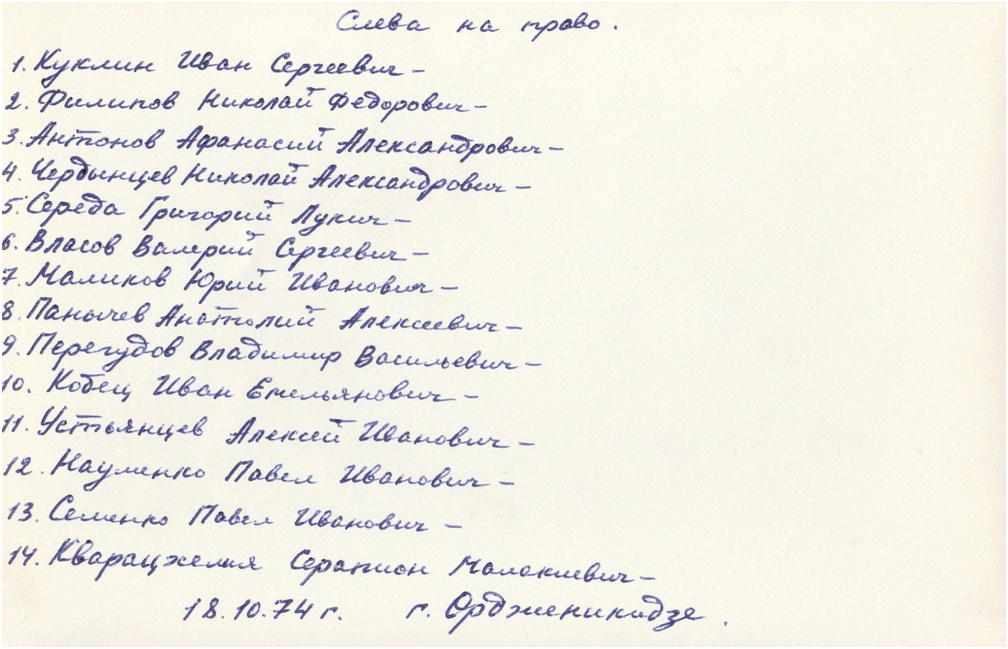 Слева на право.
1. Куклин Иван Сергеевич –
2. Филипов Николай Федорович –
3. Антонов Афанасий Александрович –
4. Чердынцев Николай Александрович –
5. Середа Григорий Лукич –
6. Власов Валерий Сергеевич –
7. Маликов Юрий Иванович –
8. Панычев Анатолий Алексеевич –
9. Перегудов Владимир Васильевич –
10. Кобец Иван Емельянович –
11. Устьянцев Алексей Иванович –
12. Науменко Павел Иванович –
13. Семенко Павел Иванович –
14. Кварацхелия Серапион Малакиевич –
18.10.74 г. г. Орджениқидзе.